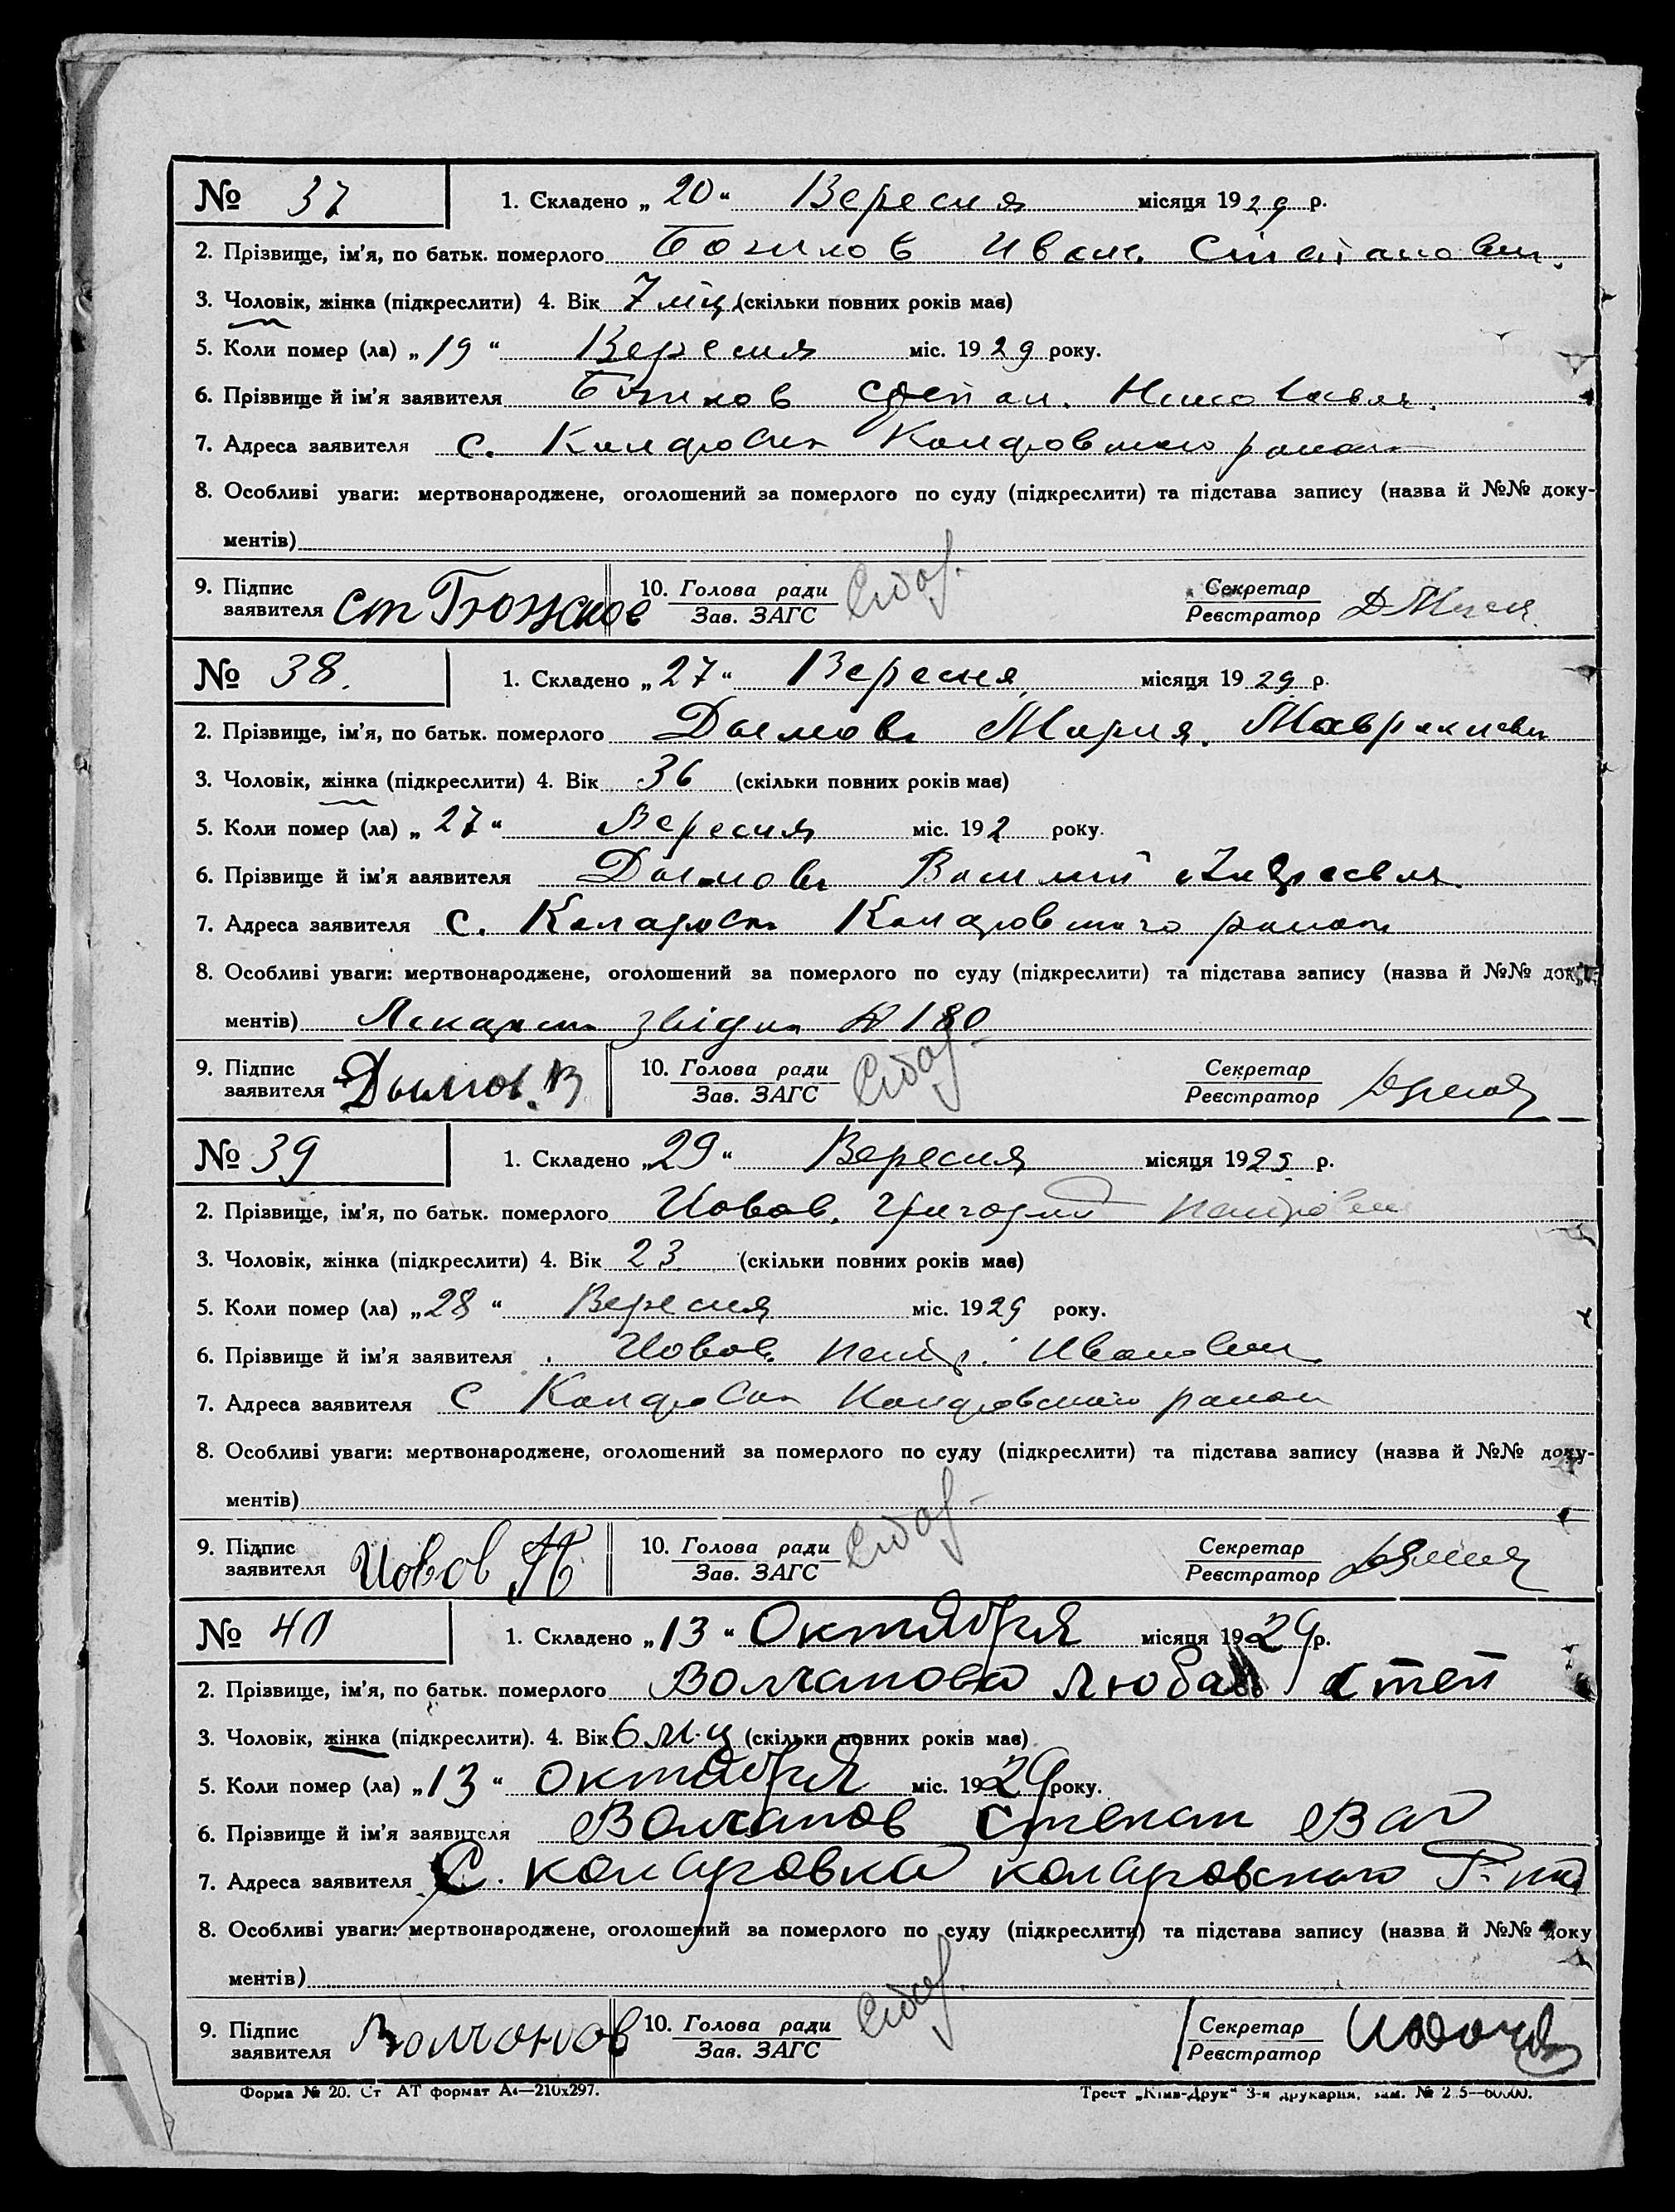 № 37
1. Складено „ 20 “ Вересня місяця 1929 р.
2. Прізвище, ім'я, по батьк. померлого Божков Иван
3. Чоловік, жінка (підкреслити) 4. Вік 7 міц (скільки повних років має)
5. Коли помер (ла) „ 19 “ Вересня міс. 1929 року.
6. Прізвище й ім'я заявителя Божков Степан
7. Адреса заявителя с.
8. Особливі уваги: мертвонароджене, оголошений за померлого по суду (підкреслити) та підстава запису (назва й №№ доку-
ментів)
9. Підпис заявителя ст Божков
10. Голова ради Зав. ЗАГС
Секретар Реєстратор
№ 38.
1. Складено „ 27 “ Вересня місяця 1929 р.
2. Прізвище, ім'я, по батьк. померлого Дымова Мария
3. Чоловік, жінка (підкреслити) 4. Вік 36 (скільки повних років має)
5. Коли помер (ла) „ 27 “ Вересня міс. 192 року.
6. Прізвище й ім'я заявителя Дымов Василий
7. Адреса заявителя с.
8. Особливі уваги: мертвонароджене, оголошений за померлого по суду (підкреслити) та підстава запису (назва й №№ доку-
ментів) № 180
9. Підпис заявителя Дымов. В
10. Голова ради Зав. ЗАГС
Секретар Реєстратор
№ 39
1. Складено „ 29 “ Вересня місяця 1929 р.
2. Прізвище, ім'я, по батьк. померлого Иовов Григорий Петрович
3. Чоловік, жінка (підкреслити) 4. Вік 23 (скільки повних років має)
5. Коли помер (ла) „ 28 “ Вересня міс. 1929 року.
6. Прізвище й ім'я заявителя Иовов Петр Иванович
7. Адреса заявителя с
8. Особливі уваги: мертвонароджене, оголошений за померлого по суду (підкреслити) та підстава запису (назва й №№ доку-
ментів)
9. Підпис заявителя Иовов П
10. Голова ради Зав. ЗАГС
Секретар Реєстратор
№ 40
1. Складено „ 13 “ Октября місяця 1929 р.
2. Прізвище, ім'я, по батьк. померлого Волчанова Люба Степ
3. Чоловік, жінка (підкреслити). 4. Вік 6 м-ц (скільки повних років має)
5. Коли помер (ла) „ 13 “ Октября міс. 1929 року.
6. Прізвище й ім'я заявителя Волчанов Степан Вас
7. Адреса заявителя С. коларовка коларовского
8. Особливі уваги: мертвонароджене, оголошений за померлого по суду (підкреслити) та підстава запису (назва й №№ доку
ментів)
9. Підпис заявителя Волчанов
10. Голова ради Зав. ЗАГС
Секретар Реєстратор
Форма № 20. Ст АТ формат А4—210х297.
Трест „Київ-Друк“ 3-я друкарня,